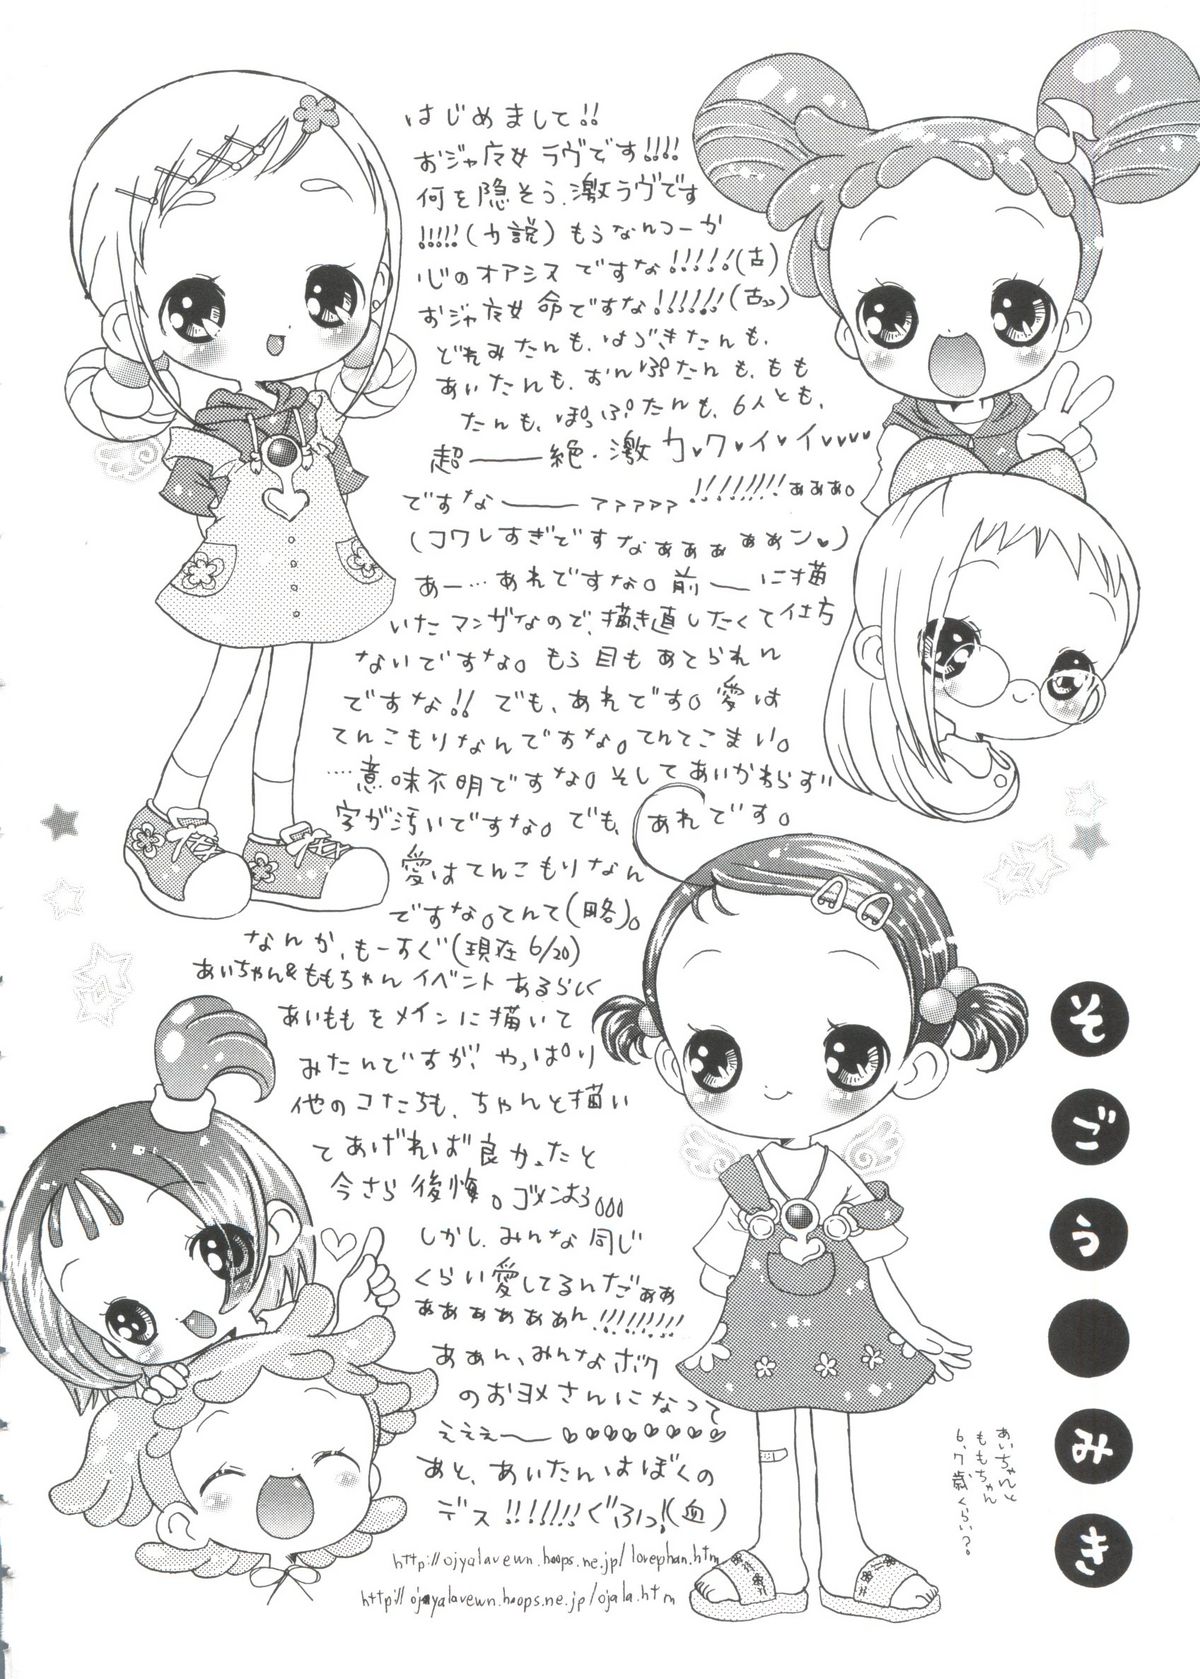 はじめまして!!
おジャ魔女ラヴです!!!!
何を隠そう、激ラヴです
!!!!!(力説)もうなんつーか
心のオアシスですな!!!!!(古)
おジャ魔女命ですな!!!!!!(古)
どれみたんも、はづきたんも、
あいたんも、おんぷたんも、もも
たんも、ぽっぷたんも、6人とも、
超――絶・激カ♥ワ♥イ♥イ♥♥♥♥
ですな――ァァァァァ!!!!!!!!ぁぁぁ。
(コワレすぎですなぁぁぁぁぁン♥)
あー…あれですな。前―に描
いたマンガなので、描き直したくて仕方
ないですな。もう目もあてられん
ですな!!でも、あれです。愛は
てんこもりなんですな。てんてこまい。
…意味不明ですな。そしてあいかわらず
字が汚いですな。でも、あれです。
愛はてんこもりなん
ですな。てんて(略)。
なんか、もーすぐ(現在6/20)
あいちゃん&ももちゃんイベントあるらしく
あいももをメインに描いて
みたんですが、やっぱり
他のコたちも、ちゃんと描い
てあげれば良かったと
今さら後悔。ゴメンよう。。。
しかし、みんな同じ
くらい愛してるんだぁぁ
ぁぁぁぁぁぁぁん!!!!!!!!!
あぁん、みんなボク
のおヨメさんになって
えええ―♡♡♡♡♡♡♡♡
あと、あいたんはぼくの
デス!!!!!!!ぐふっ!(血)
http://ojyalavewn.hoops.ne.jp/lovephan.htm
http://ojyalavewn.hoops.ne.jp/ojala.htm
そごう●みき
あいちゃんと
ももちゃん
6、7歳くらい?